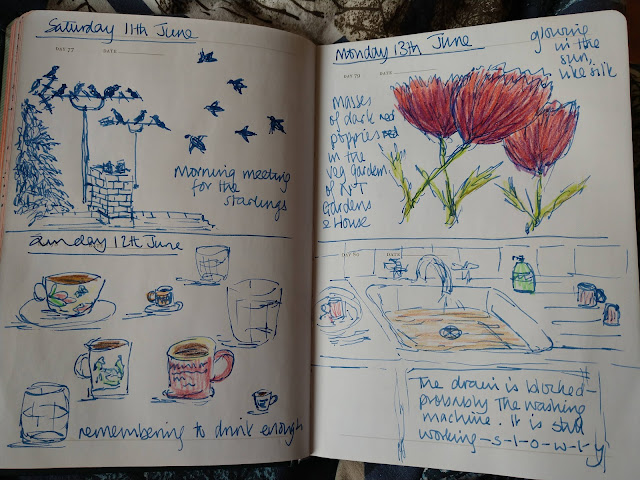 Saturday 11th June
DAY 77 DATE
Morning meeting
for the
starlings
Sunday 12th June
remembering to drink enough
Monday 13th June
DAY 79 DATE
glowing
in the
sun,
like silk
Masses
of dark red
poppies
in the
veg garden
of
Gardens
& House
DAY 80 DATE
The drain is blocked -
probably the washing
machine. It is still
working - s-l-o-w-l-y